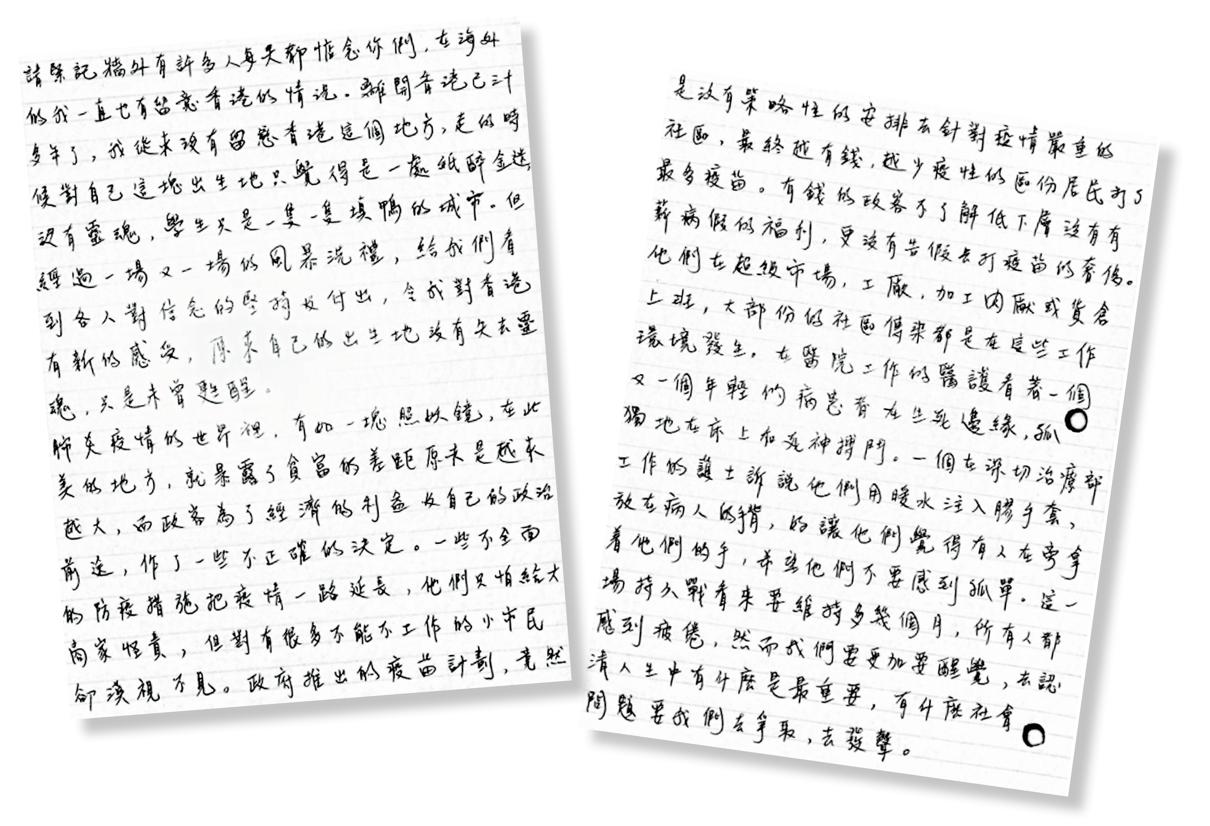 請緊記牆外有許多人每天都惦念你們，在海外
的我一直也有留意香港的情況。離開香港已二十
多年了，我從來沒有留戀香港這個地方，走的時
候對自己這塊出生地只覺得是一處紙醉金迷，
沒有靈魂，學生只是一隻一隻填鴨的城市。但
經過一場又一場的風暴洗禮，給我們看
到各人對信念的堅持及付出，令我對香港
有新的感受，原來自己的出生地沒有失去靈
魂，只是未曾甦醒。
肺炎疫情的世界裡，有如一塊照妖鏡，在此
美的地方，就暴露了貧富的差距原來是越來
越大，而政客為了經濟的利益及自己的政治
前途，作了一些不正確的決定。一些不全面
的防疫措施把疫情一路延長，他們只怕給大
商家怪責，但對有很多不能不工作的小市民
卻漠視不見。政府推出的疫苗計劃，竟然
是沒有策略性的安排去針對疫情嚴重的
社區，最終越有錢，越少疫性的區份居民打了
最多疫苗。有錢的政客不了解低下層沒有有
薪病假的福利，更沒有告假去打疫苗的奢侈。
他們在超級市場，工廠，加工肉廠或貨倉
上班，大部份的社區傳染都是在這些工作
環境發生。在醫院工作的醫護看著一個
又一個年輕的病患者在生死邊緣，孤
獨地在床上和死神搏鬥。一個在深切治療部
工作的護士訴說他們用暖水注入膠手套，
放在病人的手背，的讓他們覺得有人在旁拿
着他們的手，希望他們不要感到孤單。這一
場持久戰看來要維持多幾個月，所有人都
感到疲倦，然而我們要更加要醒覺，去認
清人生中有什麼是最重要，有什麼社會
問題要我們去爭取，去發聲。